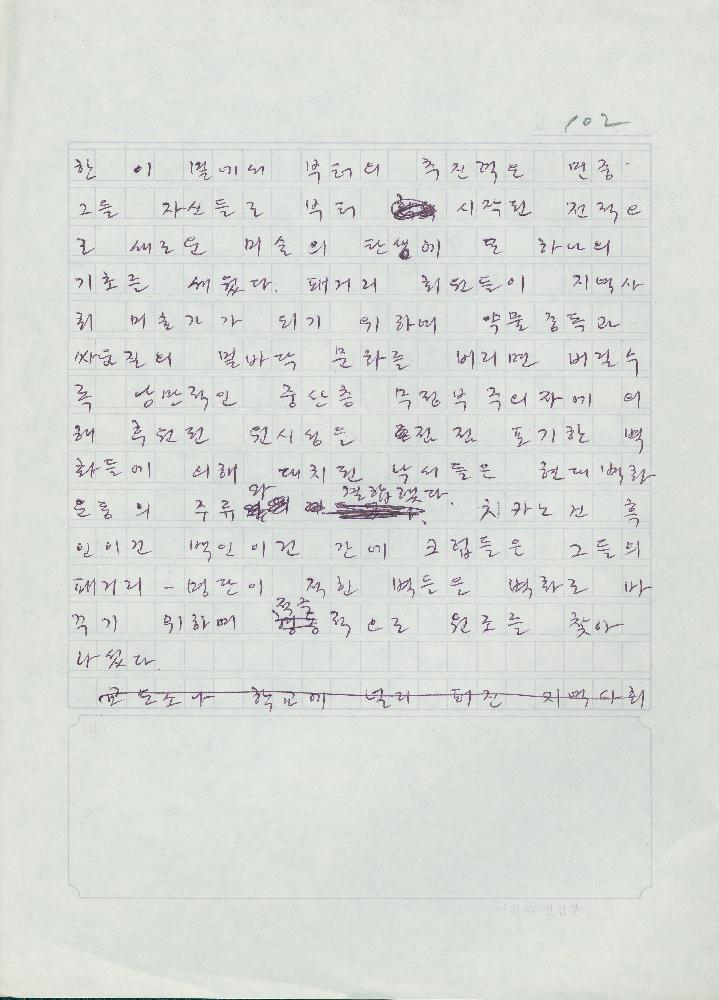 102
한 이 밑에서 부터의 추진력은 민중
그들 자신들로 부터 시작된 전적으
로 새로운 미술의 탄생에 또 하나의
기초를 세웠다. 패거리 회원들이 지역사
회 미술가가 되기 위하여 약물중독과
싸움질의 밑바닥 문화를 버리면 버릴수
록 낭만적인 중산층 무정부주의자에 의
해 후원된 원시성을 전 포기한 벽
화들에 의해 대치된 낙서들은 현대벽화
운동의 주류와 결합했다. 치카노건 흑
인이건 백인이건 간에 크럽들은 그들의
패거리 - 명단이 적힌 벽들을 벽화로 바
꾸기 위하여 적극적으로 원조를 찾아
나섰다.
교도소나 학교에 널리 퍼진 지역사회
미진사 편집부